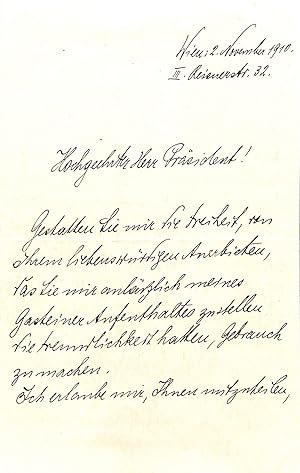 Wien: 2. November 1910.
III. Reisnerstr. 32.
Hochgeehrter Herr Präsident!
Gestatten Sie mir die Freiheit, von
Ihrem liebenswürdigen Anerbieten,
das Sie mir anlässlich meines
Gasteiner Aufenthaltes zu stellen
die Freundlichkeit hatten, Gebrauch
zu machen.
Ich erlaube mir, Ihnen mitzuteilen,